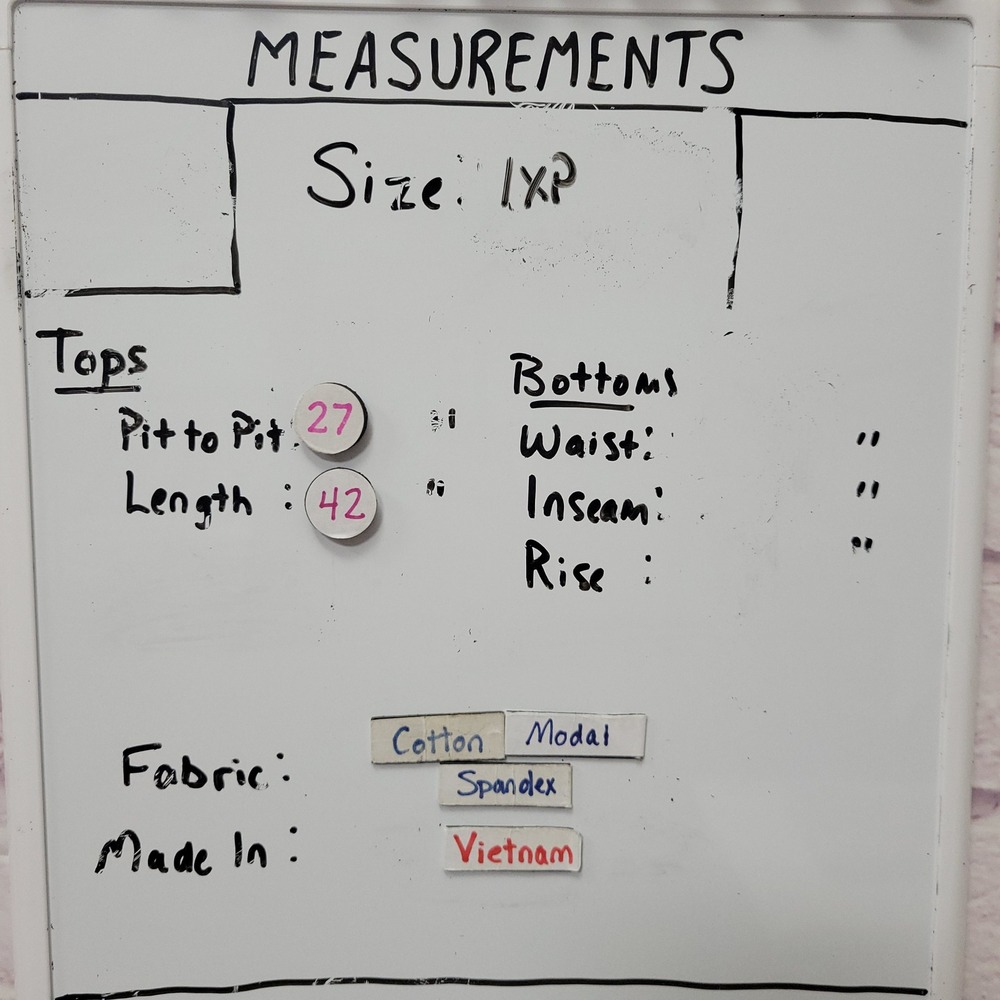 MEASUREMENTS
Size: 1XP
Tops
Pit to Pit: 27 "
Length : 42 "
Bottoms
Waist: "
Inseam: "
Rise : "
Fabric: Cotton Modal
Spandex
Made In: Vietnam